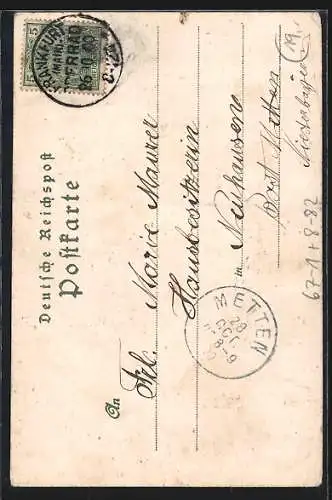 Deutsche Reichspost
Postkarte
An
Frl. Marie Maurer
Hausbesitzerin
in Neuhausen
Post Metten
Niederbayern
19.
67-1+8-82
FRANKFURT
5
METTEN
28
OCT